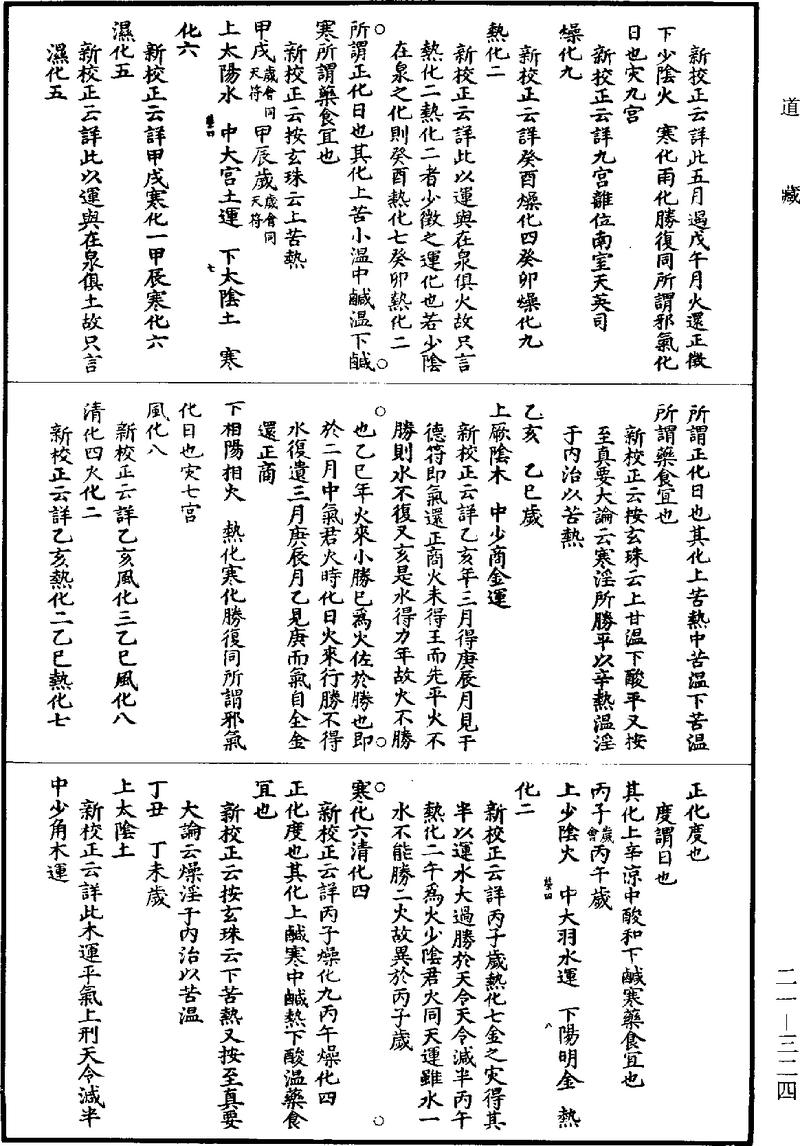 道藏
新校正云詳此五月過戊午月火還正徵
下少陰火　寒化雨化勝復同所謂邪氣化
日也灾九宮
新校正云詳九宮離位南室天英司
燥化九
新校正云詳癸酉燥化四癸卯燥化九
熱化二
新校正云詳此以運與在泉俱火故只言
熱化二熱化二者少徵之運化也若少陰
在泉之化則癸酉熱化七癸卯熱化二
所謂正化日也其化上苦小溫中鹹溫下鹹
寒所謂藥食宜也
新校正云按玄珠云上苦熱
甲戌歲會同天符　甲辰歲歲會同天符
上太陽水　中大宮土運　下太陰土　寒
化六
新校正云詳甲戌寒化一甲辰寒化六
濕化五
新校正云詳此以運與在泉俱土故只言
濕化五
所謂正化日也其化上苦熱中苦溫下苦溫
所謂藥食宜也
新校正云按玄珠云上甘溫下酸平又按
至真要大論云寒淫所勝平以辛熱溫淫
于內治以苦熱
乙亥　乙巳歲
上厥陰木　中少商金運
新校正云詳乙亥年三月得庚辰月見干
德符即氣還正商火未得王而先平火不
勝則水不復又亥是水得力年故火不勝
也乙巳年火來小勝巳為火佐於勝也即
於二月中氣君火時化日火來行勝不得
水復遺三月庚辰月乙見庚而氣自全金
還正商
下相陽相火　熱化寒化勝復同所謂邪氣
化日也灾七宮
風化八
新校正云詳乙亥風化三乙巳風化八
清化四火化二
新校正云詳乙亥熱化二乙巳熱化七
正化度也
度謂日也
其化上辛涼中酸和下鹹寒藥食宜也
丙子歲會丙午歲
上少陰火　中大羽水運　下陽明金　熱
化二
新校正云詳丙子歲熱化七金之灾得其
半以運水大過勝於天令天令減半丙午
熱化二午為火少陰君火同天運雖水一
水不能勝二火故異於丙子歲
寒化六清化四
新校正云詳丙子燥化九丙午燥化四
正化度也其化上鹹寒中鹹熱下酸溫藥食
宜也
新校正云按玄珠云下苦熱又按至真要
大論云燥淫于內治以苦溫
丁丑　丁未歲
上太陰土
新校正云詳此木運平氣上刑天令減半
中少角木運
二一—三二四